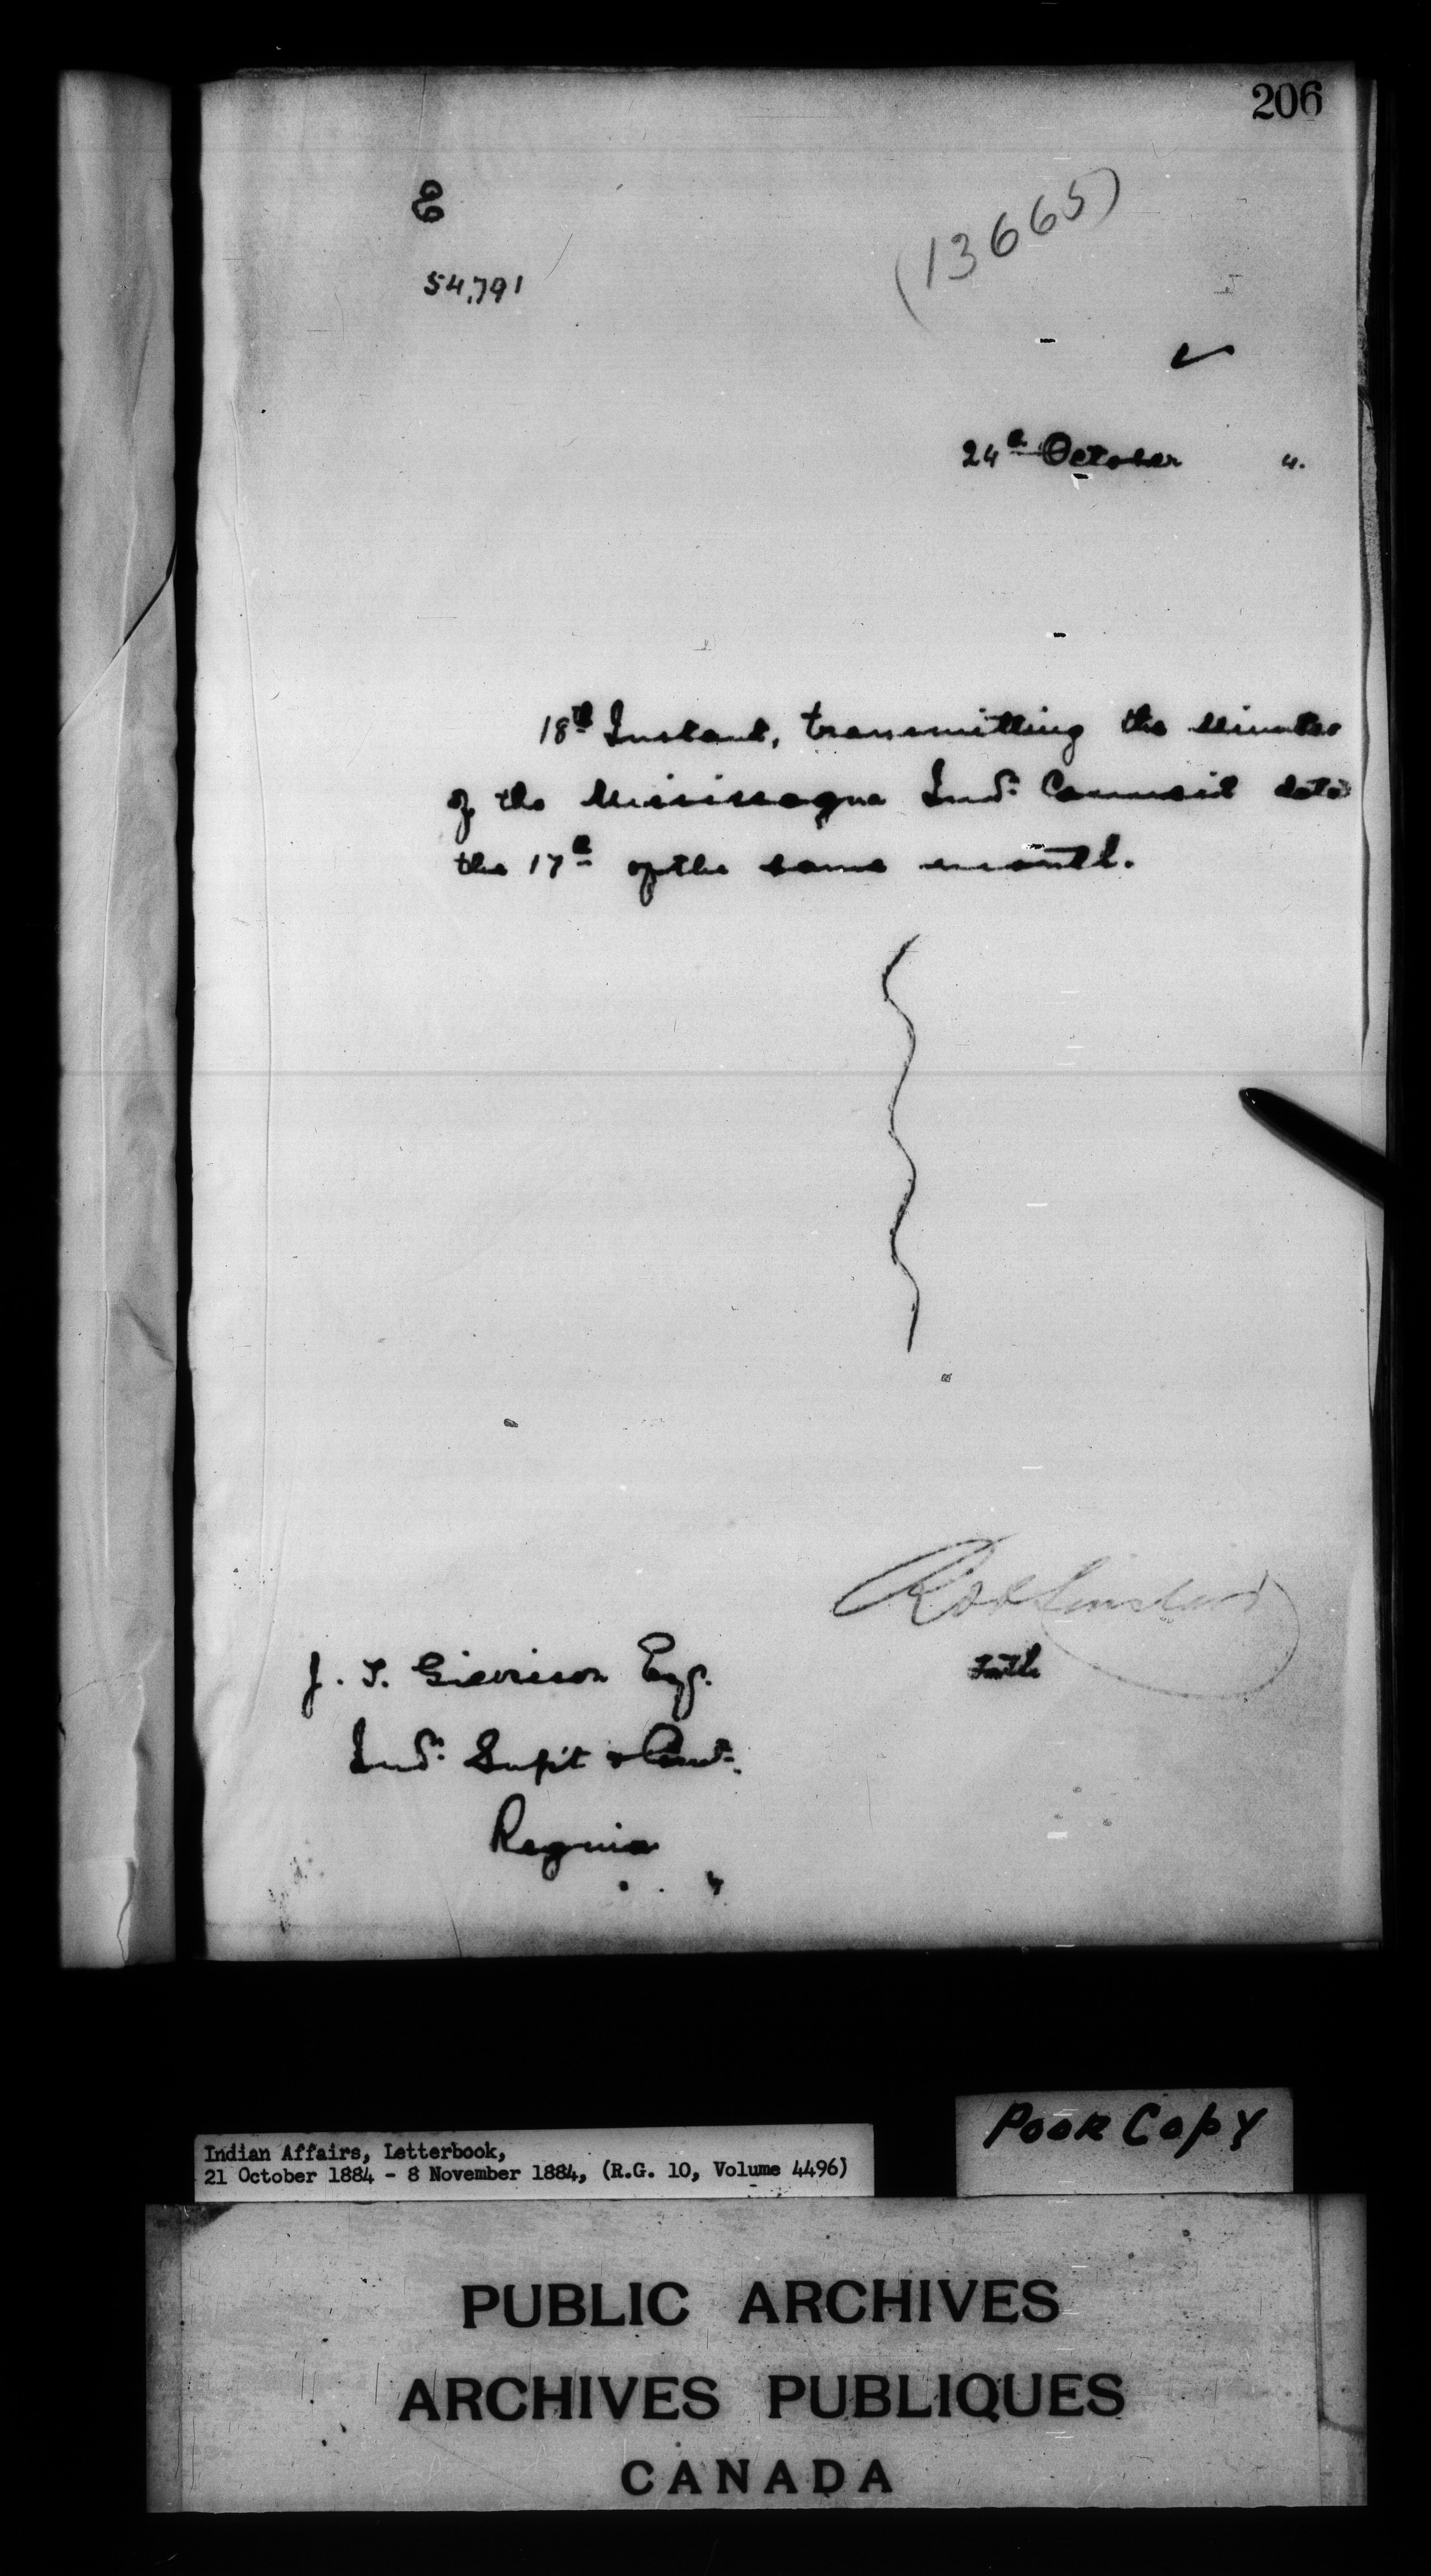 206
E
54,791
(13665)
24th October 4.
18th Instant, transmitting the Minutes
of the Mississagua Indn Council dated
the 17th of the same month.
J. T. Gilkison Esq.
Indn Supt &
Indian Affairs, Letterbook,
21 October 1884 - 8 November 1884, (R.G. 10, Volume 4496)
Poor Copy
PUBLIC ARCHIVES
ARCHIVES PUBLIQUES
CANADA